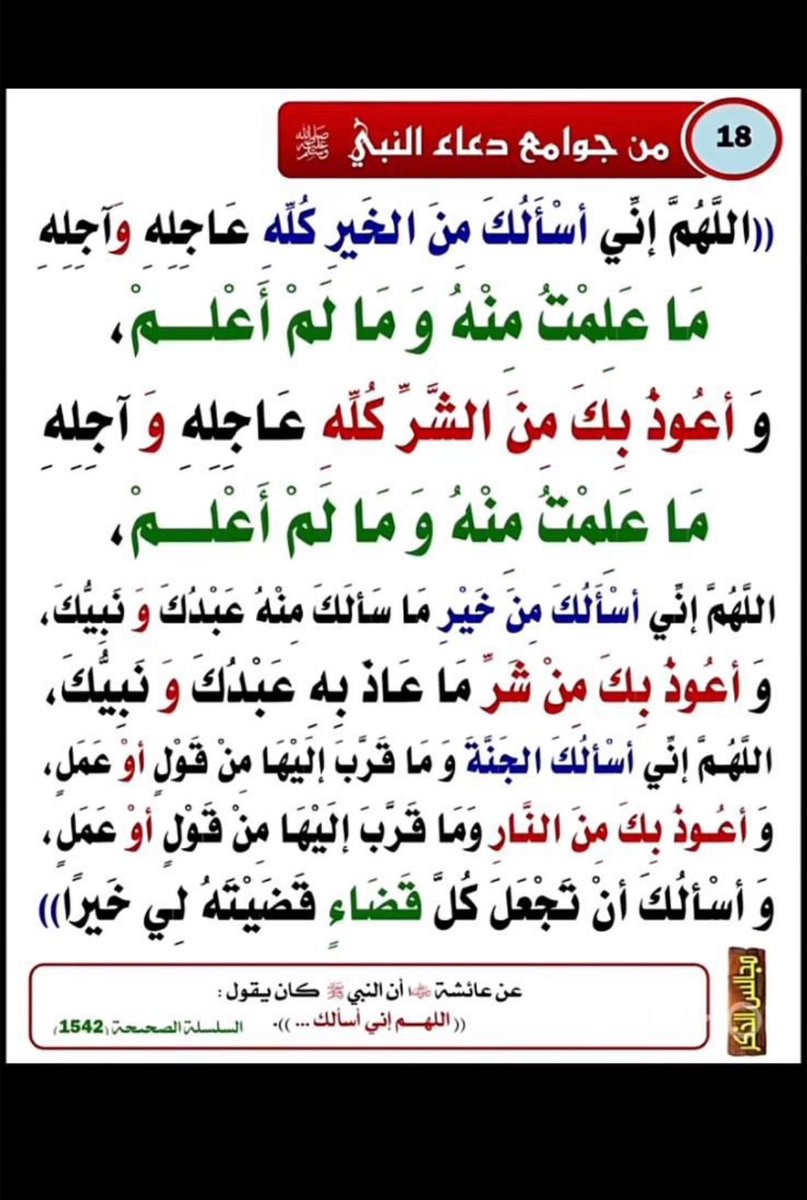 18
من جوامع دعاء النبي ﷺ
((اللَّهُمَّ إنِّي أسْأَلُكَ مِنَ الخَيرِ كُلِّه عَاجِلِهِ وَآجِلِهِ
مَا عَلِمْتُ مِنْهُ وَ مَا لَمْ أَعْلـــمْ،
وَ أعُوذُ بِكَ مِنَ الشَّرِّ كُلِّهِ عَاجِلِهِ وَ آجِلِهِ
مَا عَلِمْتُ مِنْهُ وَ مَا لَمْ أَعْلـــمْ،
اللَّهُمَّ إنِّي أسْأَلُكَ مِنَ خَيْرِ مَا سَألَكَ مِنْهُ عَبْدُكَ وَ نَبِيُّكَ،
وَ أعُوذُ بِكَ مِنْ شَرِّ مَا عَاذَ بِهِ عَبْدُكَ وَ نَبِيُّكَ،
اللَّهُمَّ إنِّي أسْألُكَ الجَنَّةَ وَ مَا قَرَّبَ إلَيْهَا مِنْ قَوْلٍ أوْ عَمَلٍ،
وَ أعُـوذُ بِكَ مِنَ النَّارِ وَمَا قَرَّبَ إلَيْهَا مِنْ قَوْلٍ أوْ عَمَلٍ،
وَ أسْألُكَ أنْ تَجْعَلَ كُلَّ قَضَاءٍ قَضَيْتَهُ لِي خَيرًا))
عن عائشة رضي الله عنها أن النبي ﷺ كان يقول :
(( اللهـــم إني أسألك ... )).
السلسلة الصحيحة (1542)
مجالس الذكر